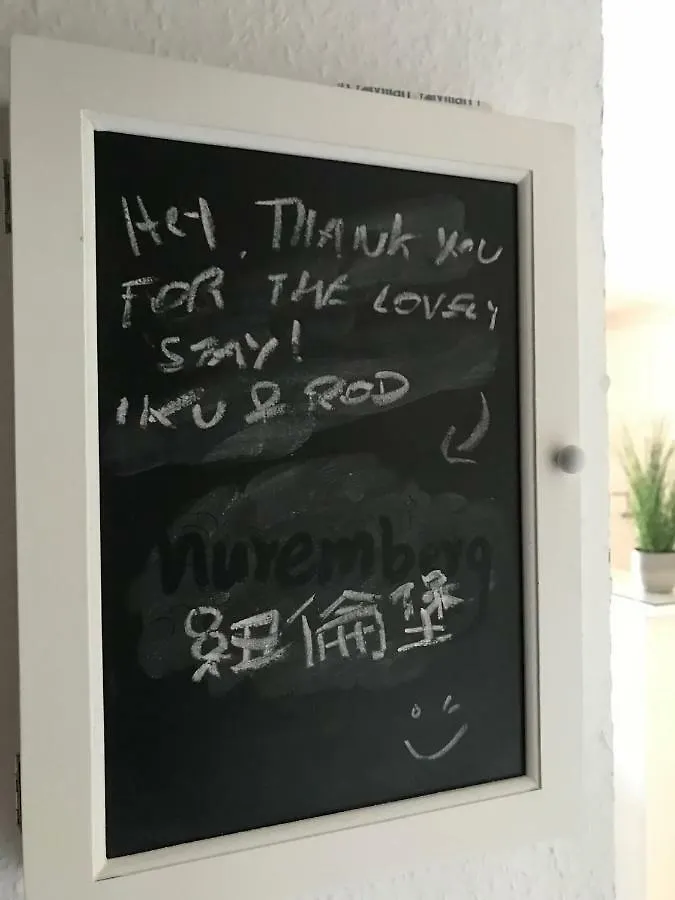 Hey, THANK YOU
FOR THE LOVELY
STAY!
IKU & ROD
nuremberg
紐倫堡